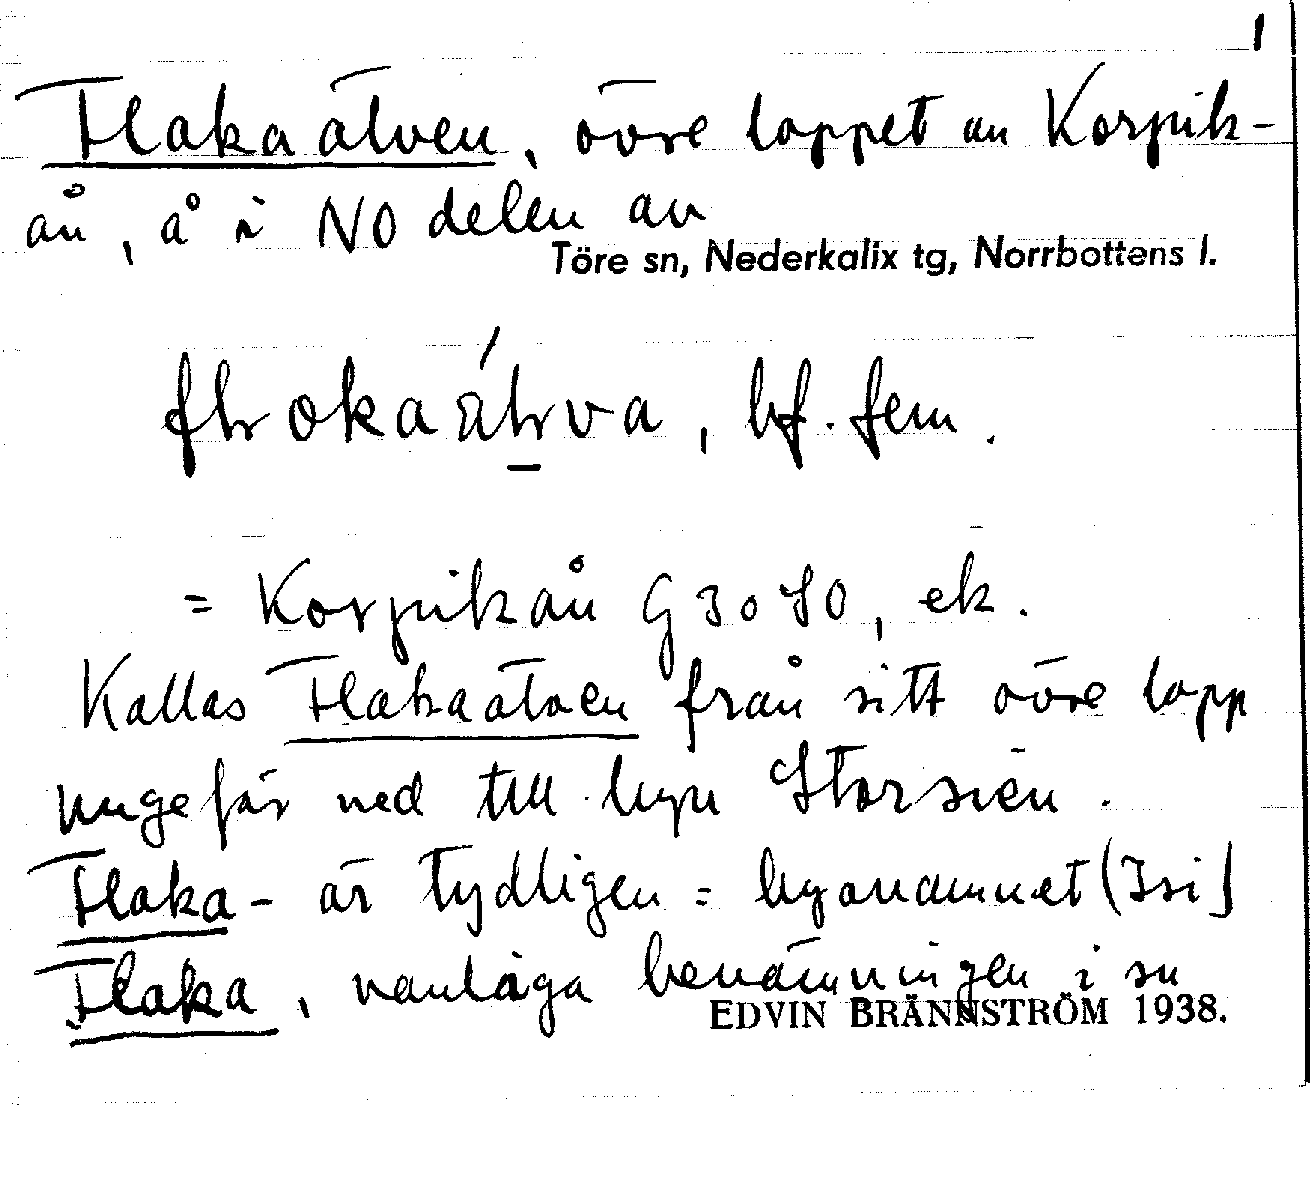 1
Flakaälven, övre loppet av Korpik-
ån, å i NO delen av
Töre sn, Nederkalix tg, Norrbottens l.
bf. fem.
= Korpikån G 30 SO, ek.
Kallas Flakaälven från sitt övre lopp
ungefär ned till byn Storsien.
Flaka- är tydligen = byanamnet (Isi)
Flaka, vanliga benämningen i sn
EDVIN BRÄNNSTRÖM 1938.